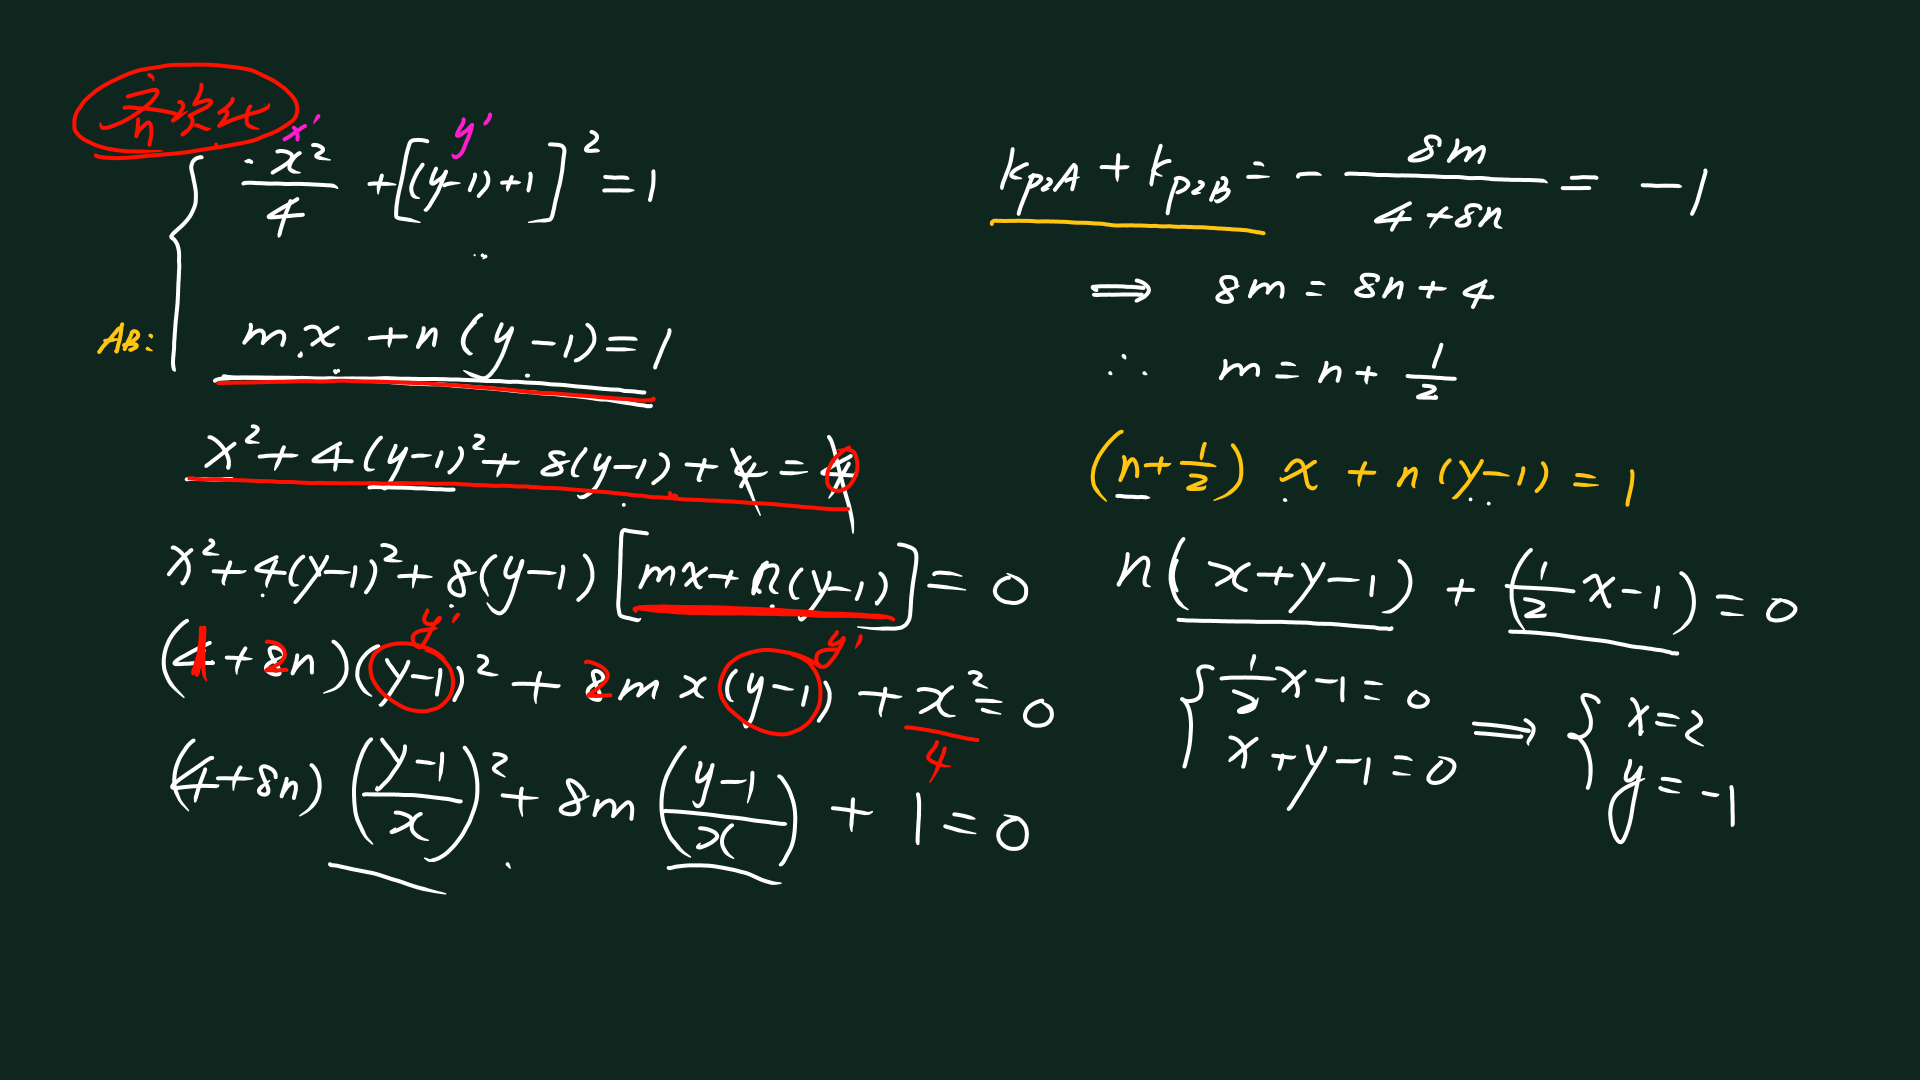 齐次化
x' y'
x²/4 + [(y-1)+1]² = 1
AB: mx + n(y-1) = 1
x² + 4(y-1)² + 8(y-1) + 4 = 4
x² + 4(y-1)² + 8(y-1)[mx + n(y-1)] = 0
y' y'
(4+8n)(y-1)² + 8mx(y-1) + x² = 0
1 2 2 4
(4+8n)((y-1)/x)² + 8m((y-1)/x) + 1 = 0
k_{P₂A} + k_{P₂B} = -8m/(4+8n) = -1
⟹ 8m = 8n + 4
∴ m = n + 1/2
(n+1/2)x + n(y-1) = 1
n(x+y-1) + (1/2x-1) = 0
{ 1/2x-1=0 ⟹ { x=2
x+y-1=0 y=-1